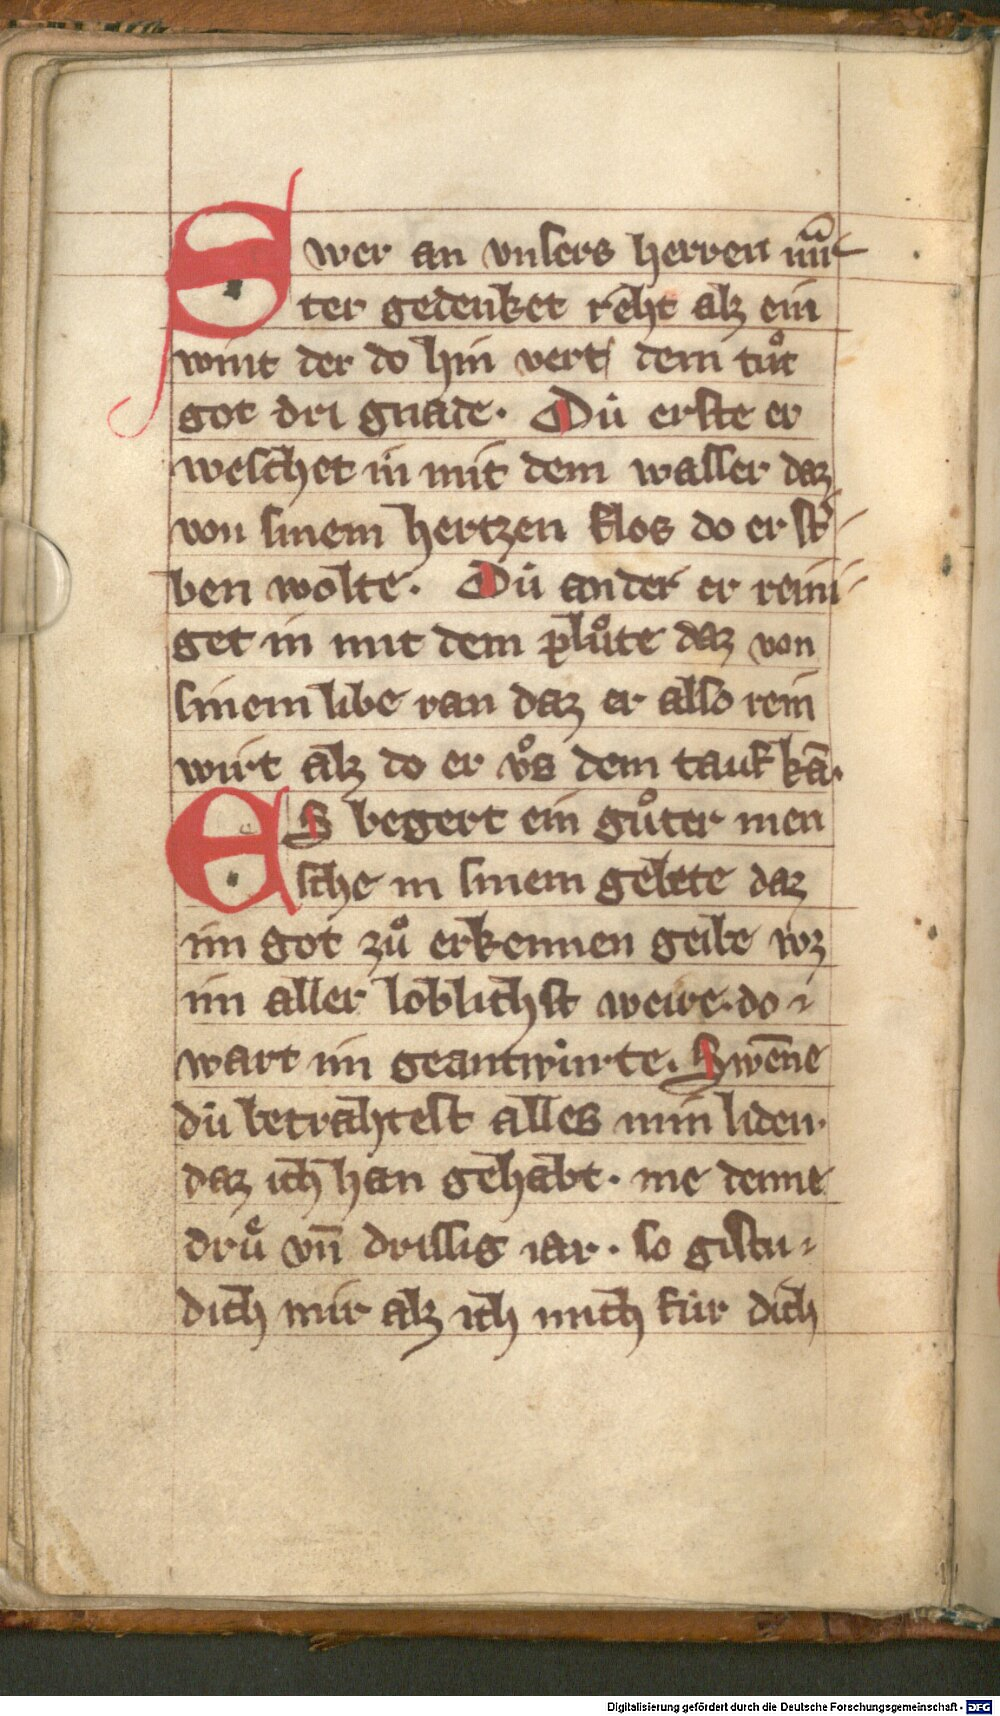 Swer an vnsers herren mů
ter gedenket reht alz ein
wint der do hin vert dem tůt
got dri gnade. Dü erste er
weschet in mit dem wasser daz
von sinem hertzen flos do er st
ben wolte. Dü ander er reini
get in mit dem plůte daz von
sinem libe ran daz er also rein
wirt alz do er vͦs dem tauf kā.
ES begert ein gůter men
sche in sinem gebete daz
im got zů erkennen gebe wz
im aller loblichst were. do
wart im geantwürte. Swēne
dü betrahtest alles min liden.
daz ich han gehabt. me denne
drü vn̄ drissig iar. so gistu
dich mir alz ich mich für dich
Digitalisierung gefördert durch die Deutsche Forschungsgemeinschaft - DFG